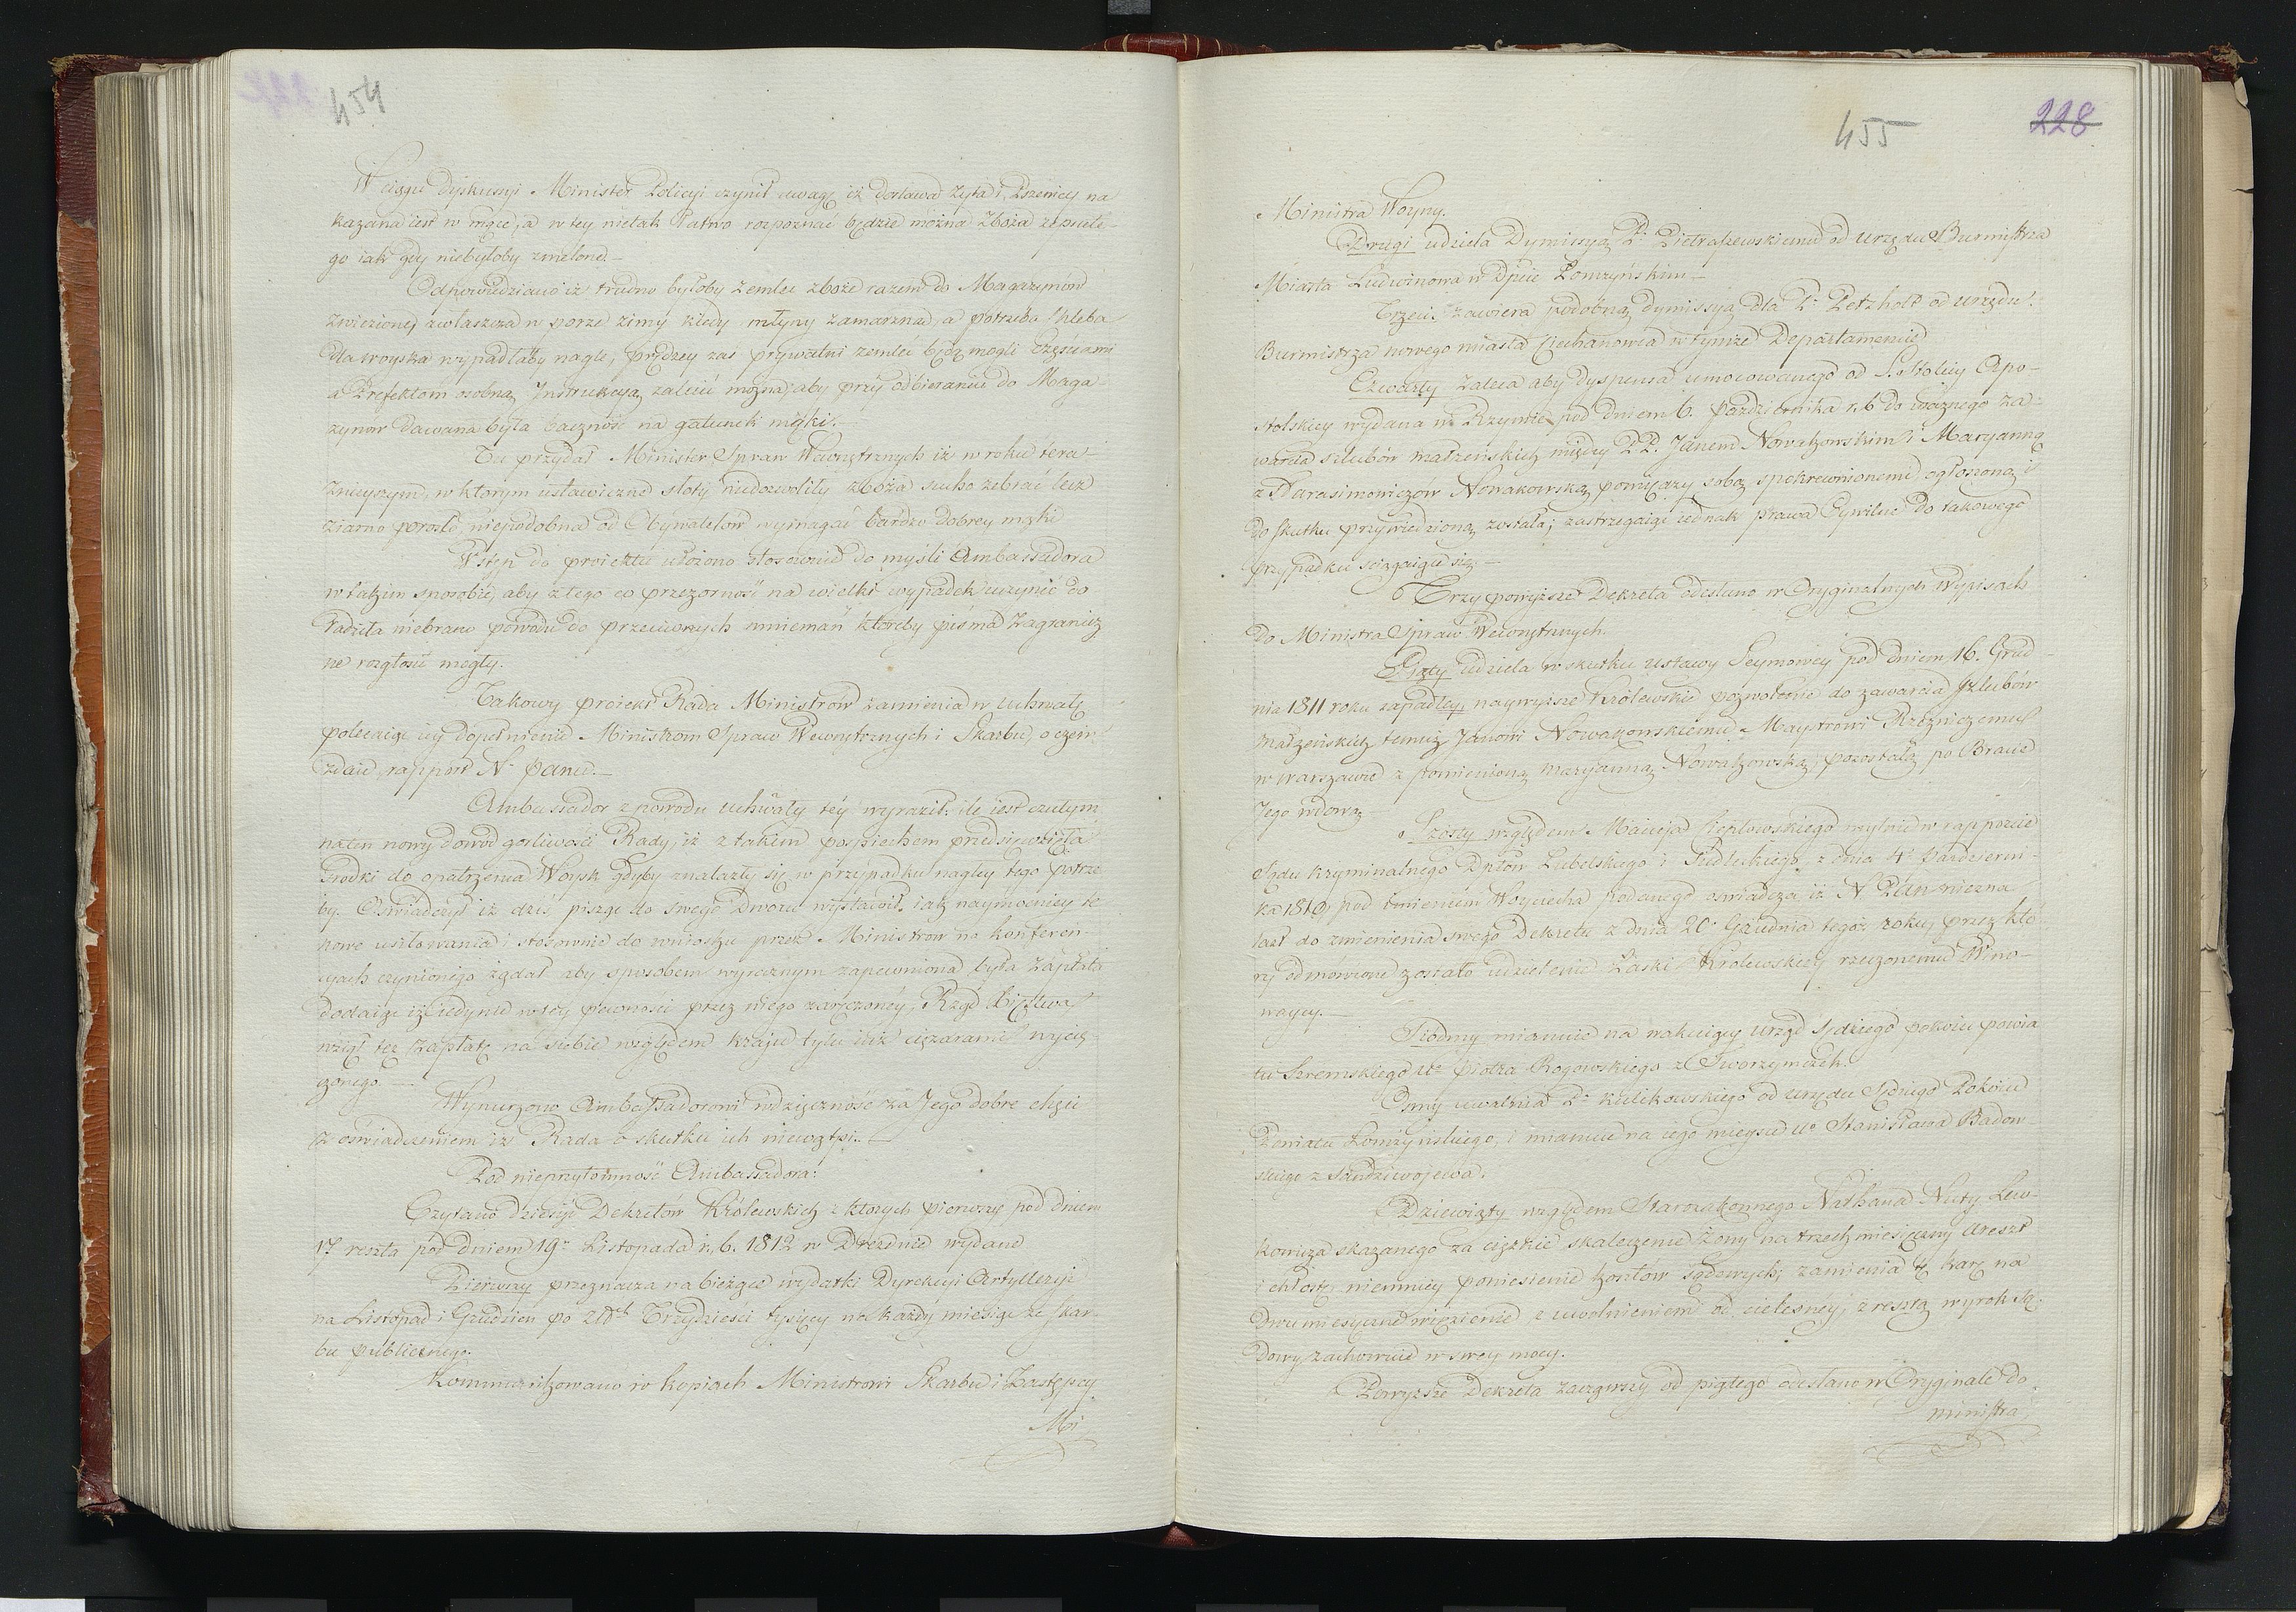 454
W ciągu dyskussyi Minister Policyi czynił uwagę iż dostawa żyta i pszenicy na
kazana iest w mące, a w tey nietak łatwo rozpoznać będzie można zboża zepsute-
go iak gdy niebyłoby zmielone.—
Odpowiedziano iż trudno byłoby zemleć zboże razem do Magazynów
zwiezione, zwłaszcza w porze zimy kiedy młyny zamarzną, a potrzeba chleba
dla woyska wypadłaby nagle, prędzey zaś prywatni zemleć będą mogli częściami
a Prefektom osobną Instrukcyą zalecić można, aby przy odbieraniu do Maga-
zynów dawana była baczność na gatunek mąki.—
Tu przydał Minister Spraw Wewnętrznych iż w roku tera-
źnieyszym, w którym ustawiczne słoty niedozwoliły zboża sucho zebrać lecz
ziarno porosło, niepodobna od Obywatelów wymagać bardzo dobrey mąki
Wstęp do proiektu ułożono stosownie do myśli Ambassadora
w takim sposobie, aby z tego co przezorność na wielki wypadek uczynić do
radziła niebrano powodu do przeciwnych mniemań któreby pisma zagranicz
ne rozgłosić mogły.
Takowy proiekt Rada Ministrów zamienia w uchwałę
polecaiąc iey dopełnienie Ministrom Spraw Wewnętrznych i Skarbu, o czem
zdaie rapport N. Panu.—
Ambassador z powodu uchwały tey wyraził, ile iest czułym
na ten nowy dowód gorliwości Rady, iż z takim pospiechem przedsięwzięła
środki do opatrzenia Woysk gdyby znalazły się w przypadku nagłey tego potrze
by. Oświadczył iż dziś pisząc do swego Dworu wystawił iak naymocniey te
nowe usiłowania i stosownie do wniosku przez Ministrów na konferen-
cyach czynionego żądał aby sposobem wyraźnym zapewniona była zapłata
dodaiąc iż iedynie w tey pewności przez niego zaręczoney, Rząd Xięstwa
wziął tę zapłatę na siebie względem kraju tylu iuż ciężarami wycię
żonego.—
Wynurzono Ambassadorowi wdzięczność za Jego dobre chęci
z oświadczeniem iż Rada o skutku ich niewątpi.—
Pod nieprzytomność Ambassadora:
Czytano dziesięć Dekretów Królewskich z których pierwszy pod dniem
17 reszta pod dniem 19º Listopada r. b. 1812 w Dreźnie wydane
Pierwszy przeznacza na bieżące wydatki Dyrekcyi Artylleryi
na Listopad i Grudzień po złłch Trzydzieści tysięcy na każdy miesiąc ze skar-
bu publicznego.
Kommunikowano w kopiach Ministrowi Skarbu i Zastępcy
Mi
455
228
Ministra Woyny.
Drugi udziela Dymissyą P. Pietraszewskiemu od Urzędu Burmistrza
Miasta Ludwinowa w Dpcie Łomżyńskim—
Trzeci zawiera podobną dymissyą dla P. Petzholt od urzędu
Burmistrza nowego miasta Ciechanowca w tymże Departamencie
Czwarty zaleca aby dyspensa umocowanego od S. Stolicy Apo-
stolskiey wydana w Rzymie pod dniem 6. Października r. b do ważnego za-
warcia szlubów małżeńskich między PP. Janem Nowakowskim i Maryanną
z Harasimowiczów Nowakowską pomiędzy sobą spokrewnionemi, ogłoszoną i
do skutku przywiedzioną została; zastrzegaiąc iednak prawa Cywilne do takowego
przypadku ściągaiące się.—
Trzy powyższe Dekreta odesłano w Oryginalnych Wypisach
do Ministra Spraw Wewnętrznych.
Piąty udziela w skutku ustawy Seymowey pod dniem 16. Grud-
nia 1811 roku zapadłey, naywyższe Królewskie pozwolenie do zawarcia szlubów
małżeńskich temuż Janowi Nowakowskiemu Maystrowi Rzeźniczemu
w Warszawie z pomienioną Maryanną Nowakowską, pozostałą po Bracie
Jego wdową—
Szósty względem Macieja Cieplowskiego mylnie w rapporcie
Sądu Kryminalnego Dptów Lubelskiego i Siedleckiego z dnia 4 Październi-
ka 1810, pod imieniem Woyciecha podanego oświadcza, iż N. Pan niezna
lazł do zmienienia swego Dekretu z dnia 20. Grudnia tegoż roku, przez któ
ry odmówione zostało udzielenie Łaski Królewskiey rzeczonemu Wino-
waycy.—
Siódmy mianuie na wakuiący urząd Sędziego pokoiu powia
tu Szremskiego Ur. Piotra Rogowskiego z Tworzymirek.
Osmy uwalnia P. Kulikowskiego od urzędu Sędziego Pokoiu
Powiatu Łomżyńskiego, i mianuie na iego mieysce Ur Stanisława Badow-
skiego z Sandziwojewa.
Dziewiąty względem Starozakonnego Nathana Nuty Lew-
kowicza skazanego za ciężkie skaleczenie żony na trzech miesięczny areszt
i chłostę, niemniey poniesienie kosztów sądowych, zamienia tę karę na
dwumiesięczne więzienie z uwolnieniem od cielesney; z resztą wyrok Są-
dowy zachowuie w swey mocy.
Powyższe Dekreta zacząwszy od piątego odesłano w Oryginale do
ministra